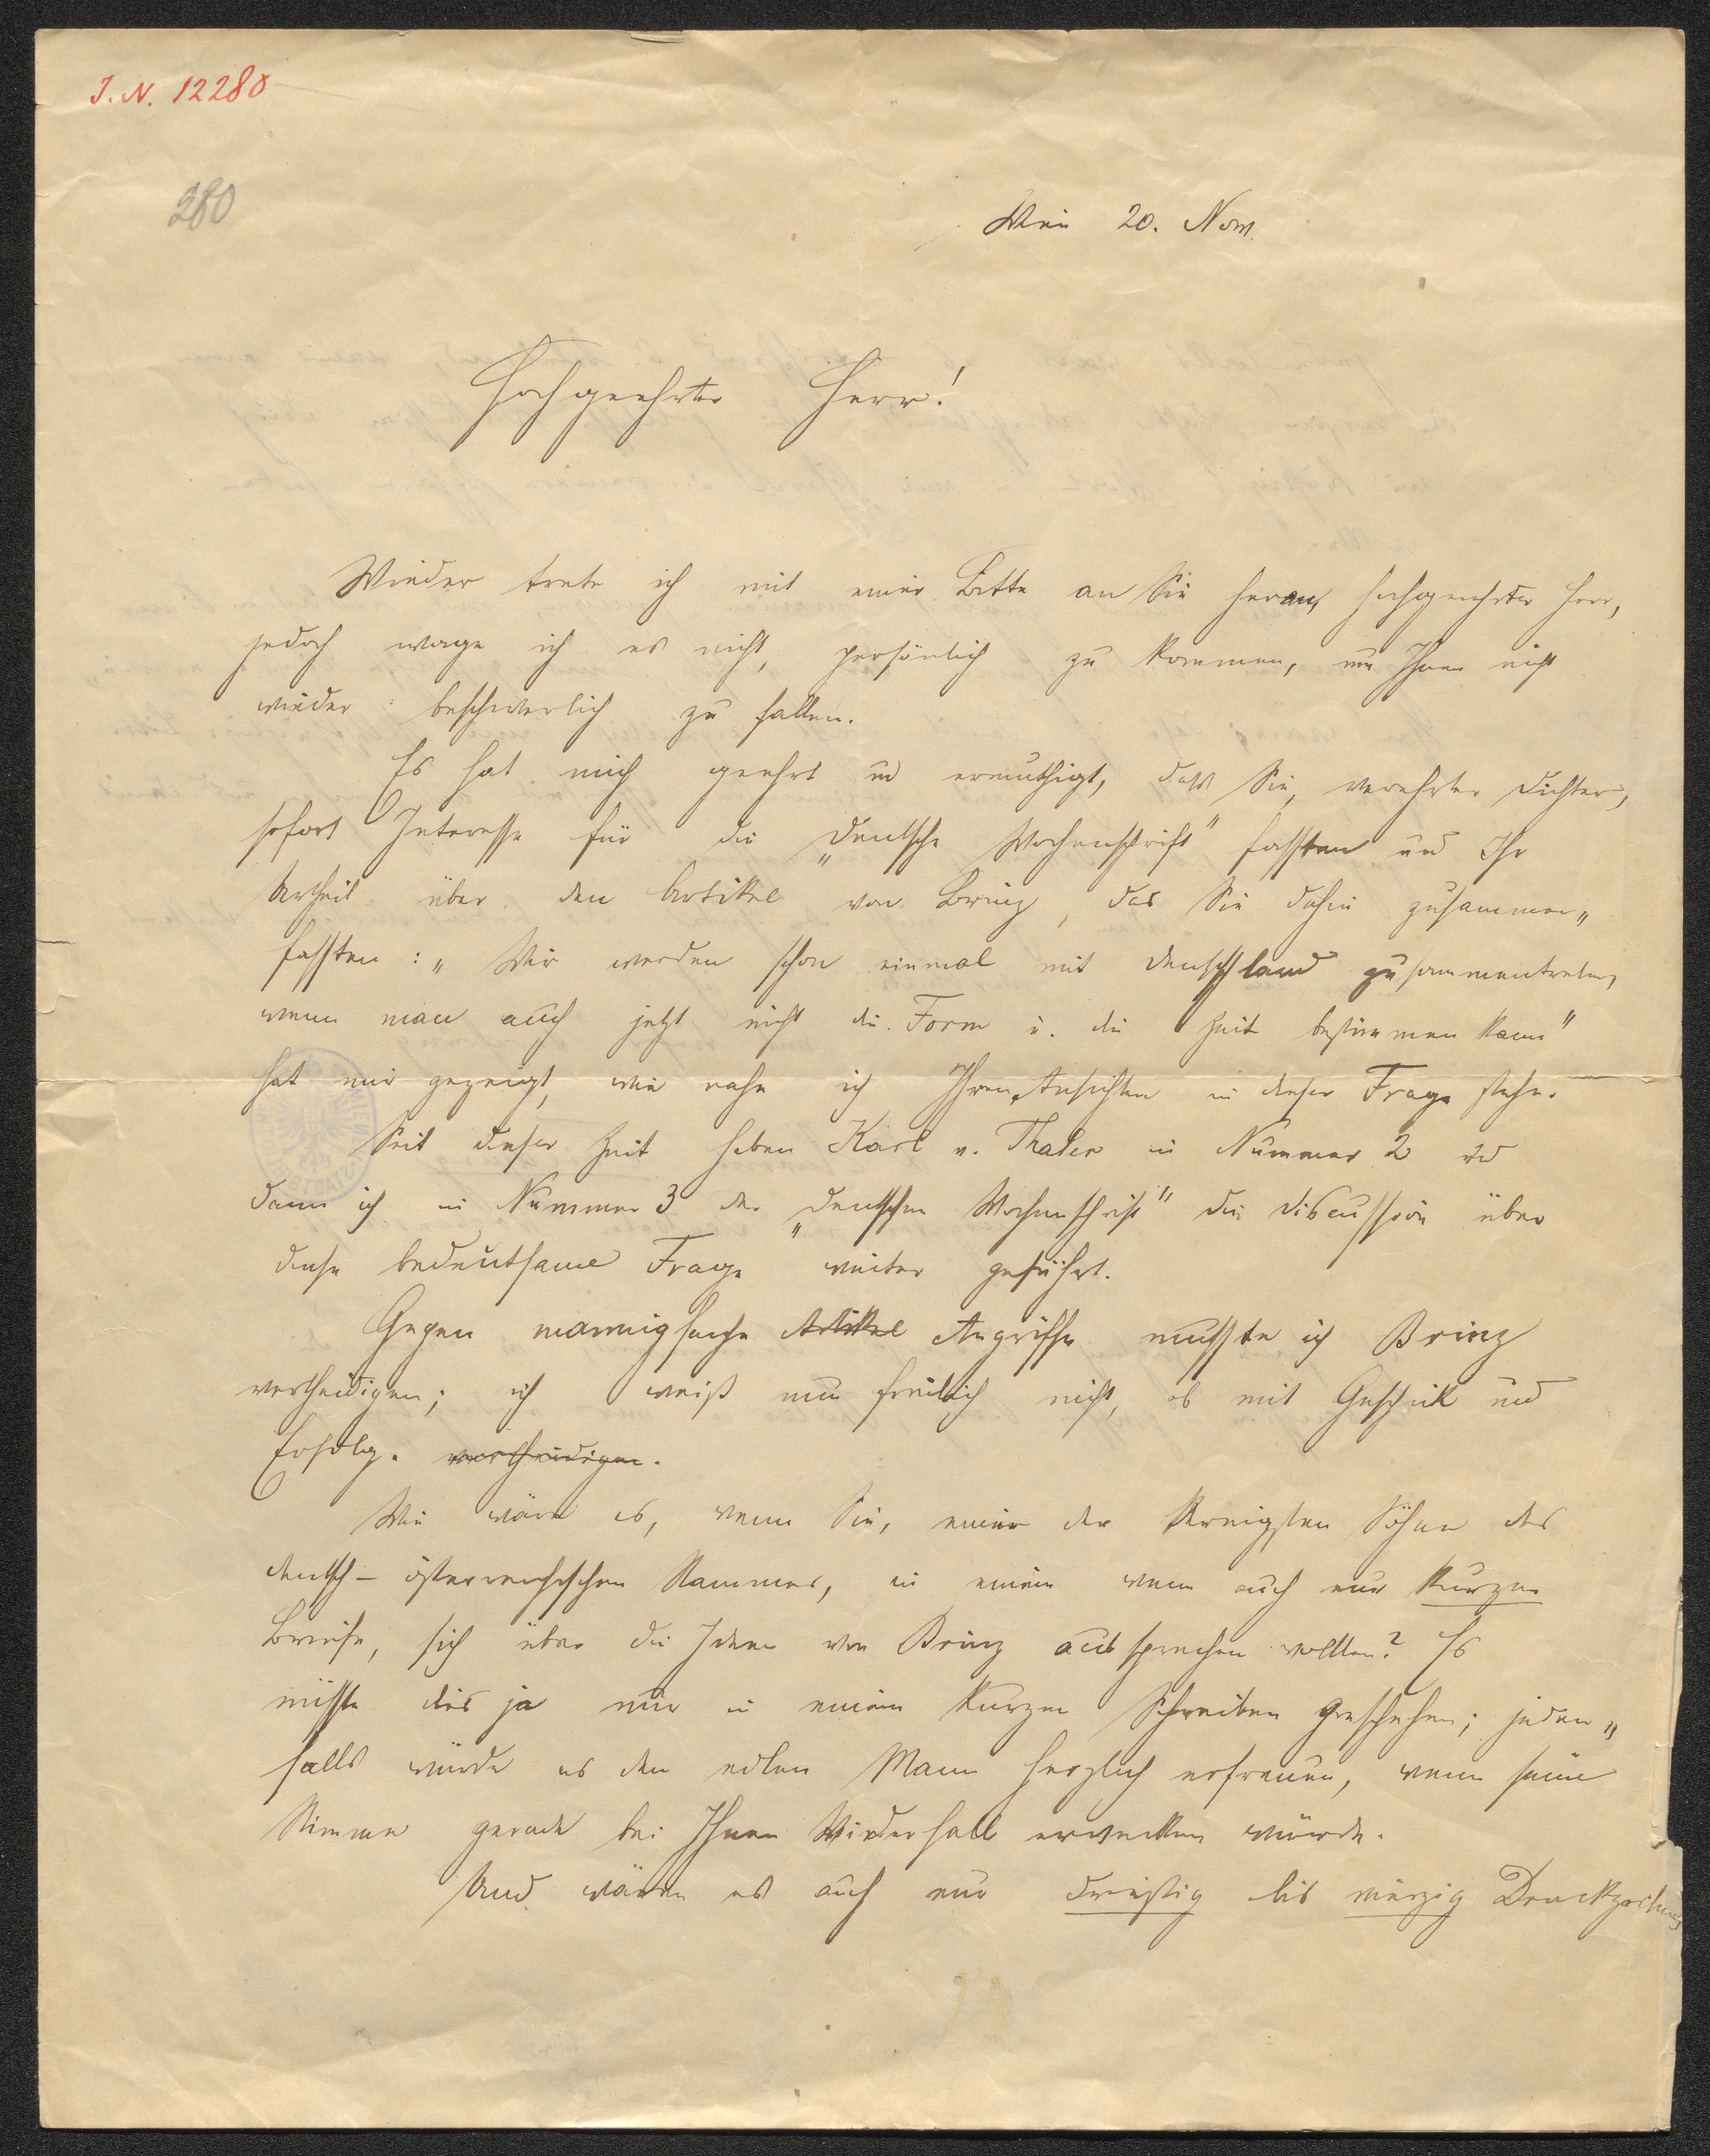 J. N. 12280
280
Wien 20. Nov.
Hochgeehrter Herr!
Wieder trete ich mit einer Bitte an Sie heran, hochgeehrter Herr,
jedoch wage ich es nicht, persönlich zu kommen, um Ihnen nicht
wieder beschwerlich zu fallen.
Es hat mich geehrt und ermuthigt, daß Sie, verehrter Dichter,
sofort Interesse für die „Deutsche Wochenschrift" faßten und Ihr
Urtheil über den Artikel von Brinz, das Sie dahin zusammen„
faßten: „Wir werden schon einmal mit Deutschland zusammentreten,
wenn man auch jetzt nicht die Form u. die Zeit bestimmen kann"
hat mir gezeigt, wie nahe ich Ihren Ansichten in dieser Frage stehe.
Seit dieser Zeit haben Karl v. Thaler in Nummer 2 und
dann ich in Nummer 3 der „Deutschen Wochenschrift" die Discussion über
diese bedeutsame Frage weiter geführt.
Gegen mannigfache Artikel Angriffe mußte ich Brinz
vertheidigen; ich weiß nun freilich nicht, ob mit Geschick und
Erfolg. vertheidigen.
Wie wäre es, wenn Sie, einer der kernigsten Söhne des
deutsch-österreichischen Stammes, in einem wenn auch nur kurzen
Briefe, sich über die Ideen von Brinz aussprechen wollten? Es
müßte dies ja nur in einem kurzen Schreiben geschehen; jeden„
falls würde es den edlen Mann herzlich erfreuen, wenn seine
Stimme gerade bei Ihnen Wiederhall erwecken würde.
Und wären es auch nur dreißig bis vierzig Druckzeilen,